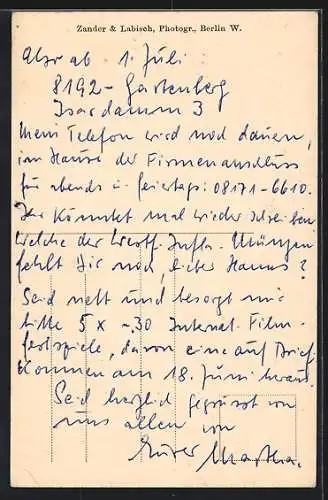 Zander & Labisch, Photogr., Berlin W.
Also ab 1. Juli:
8192 - Gartenberg
Isardamm 3
Mein Telefon wird noch dauern,
im Hause der Firmenanschluss
für abends u. feiertags: 08171-6610.
Ihr könntet mal wieder schreiben
welche der Münzen
fehlt Dir noch, lieber Hanns?
Seid nett und besorgt mir
bitte 5 x -.30 Internat. Film-
festspiele, davon eine auf Brief.
Kommen am 18. Juni heraus.
Seid herzlich gegrüsst von
uns allen von
Eurer Martha.